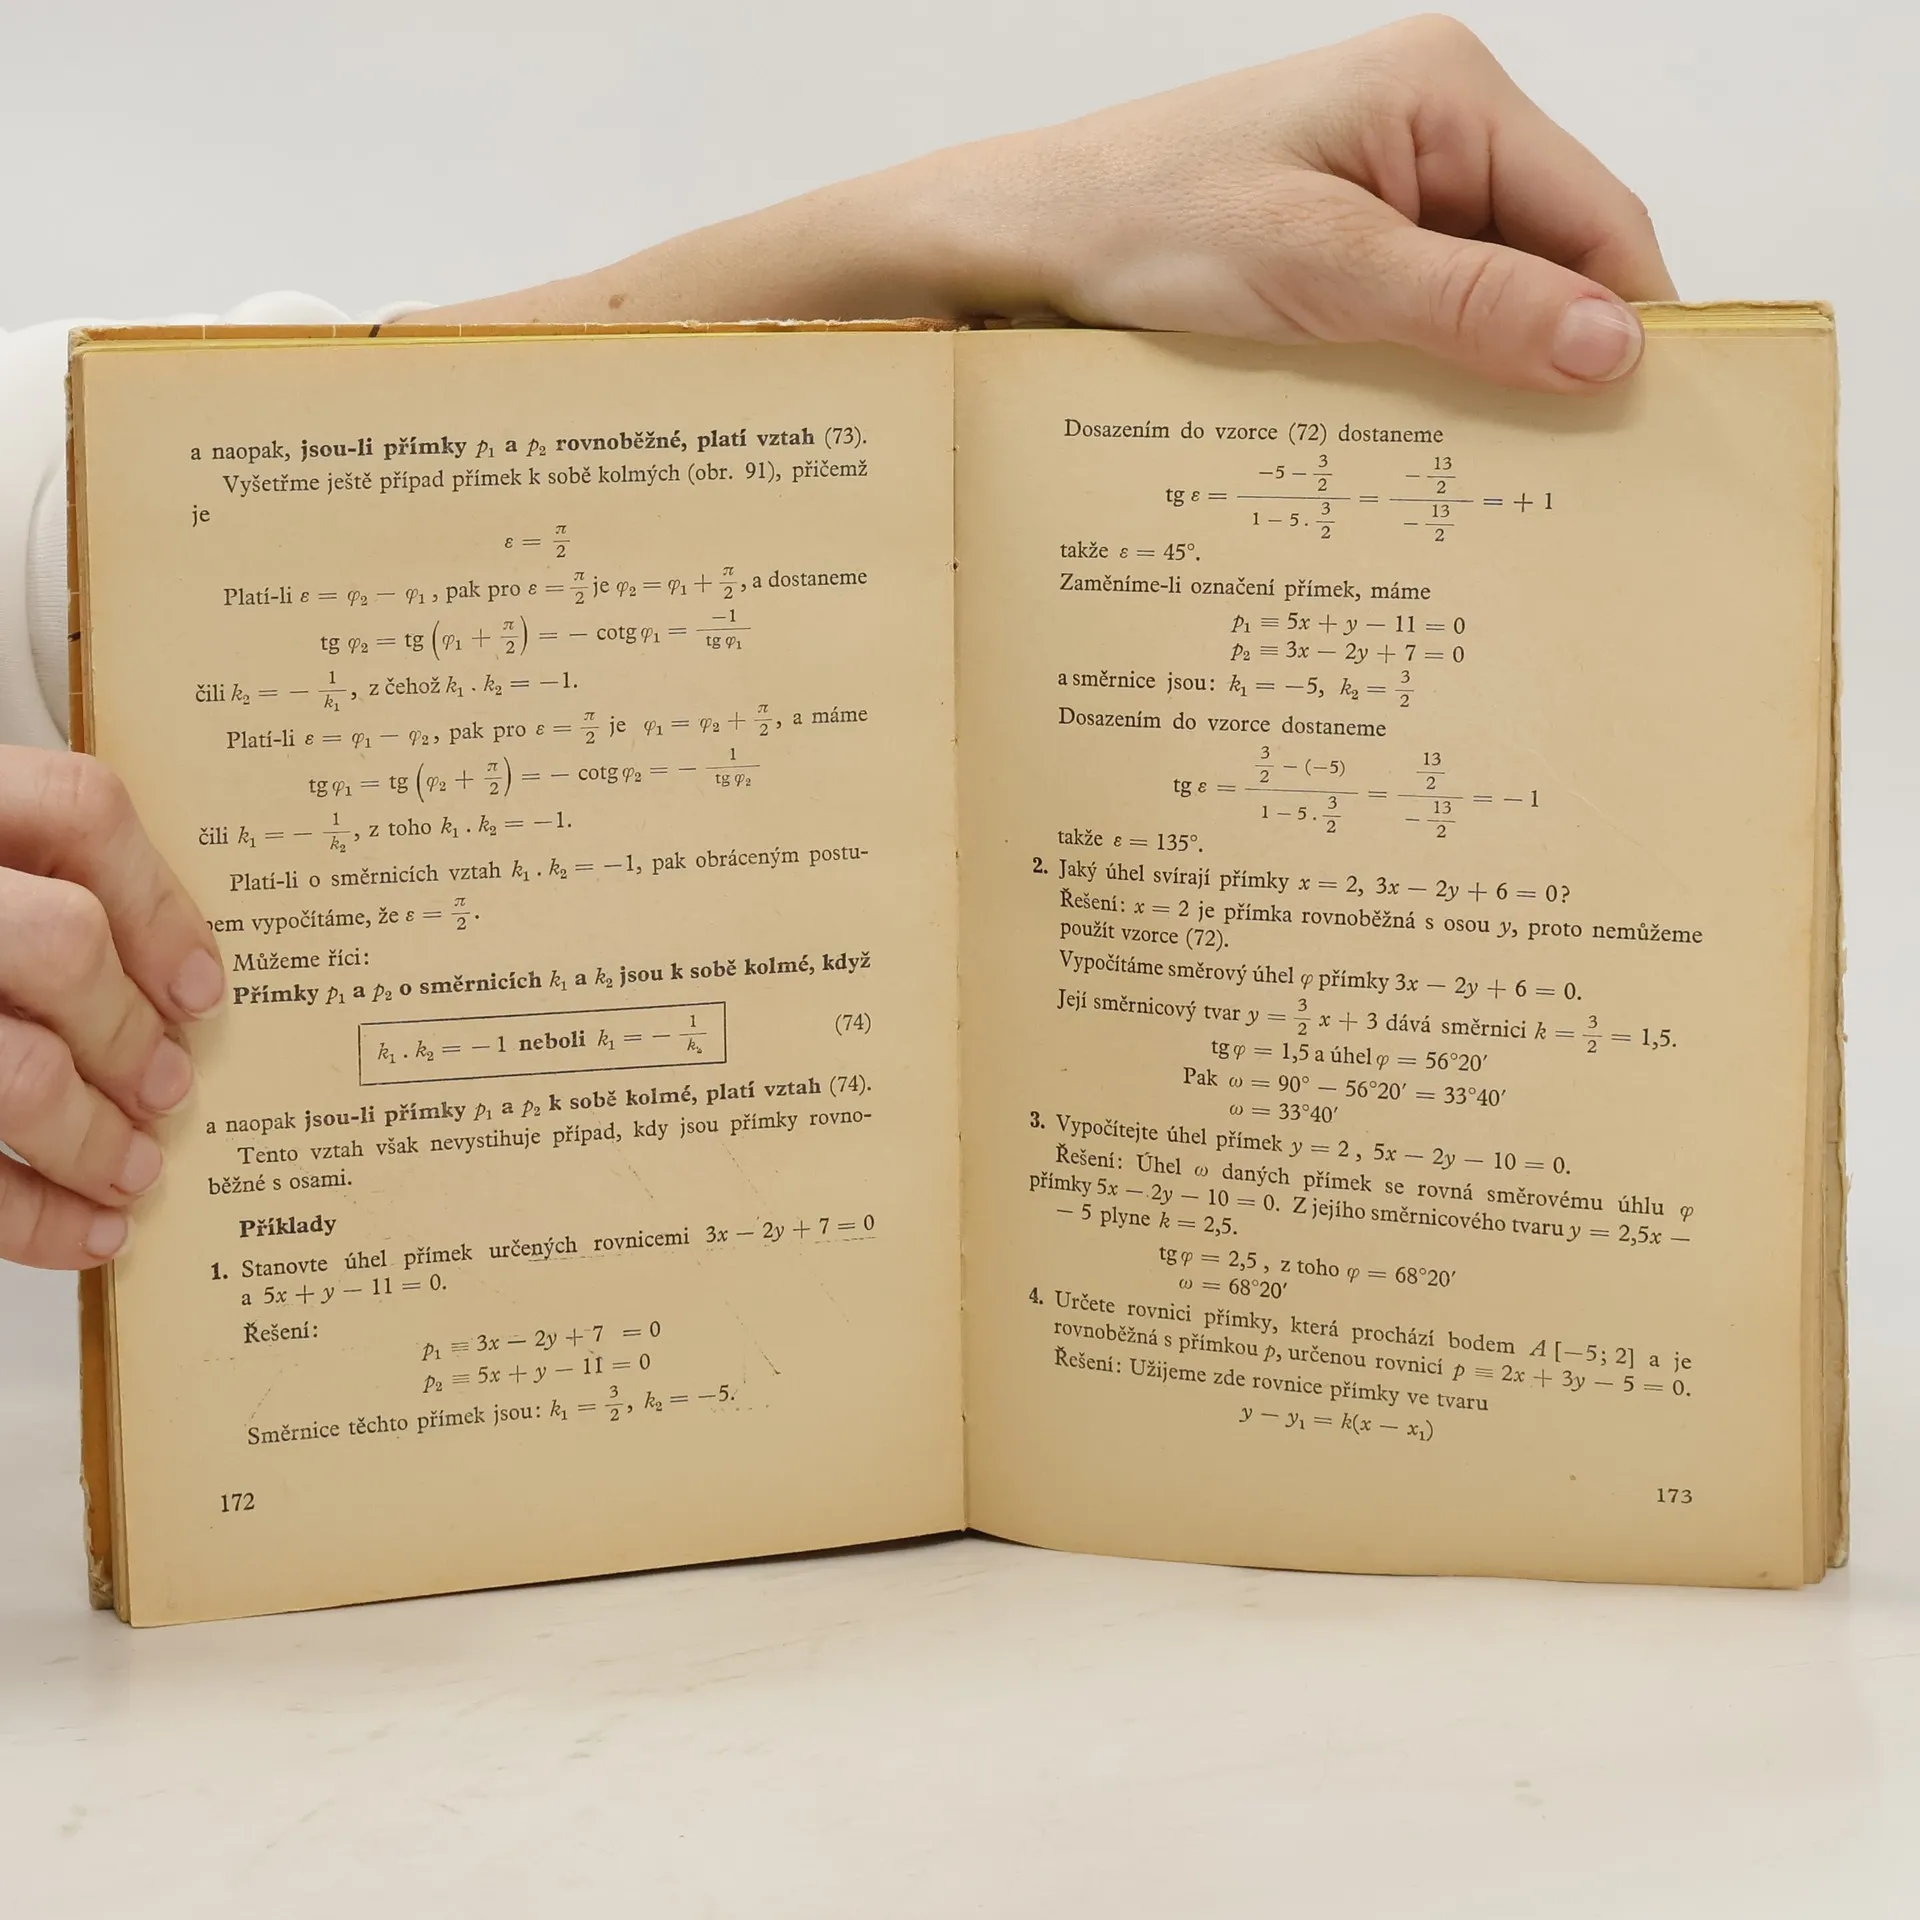 a naopak, jsou-li přímky p₁ a p₂ rovnoběžné, platí vztah (73).
Vyšetřme ještě případ přímek k sobě kolmých (obr. 91), přičemž
je
ε = π/2
Platí-li ε = φ₂ − φ₁, pak pro ε = π/2 je φ₂ = φ₁ + π/2, a dostaneme
tg φ₂ = tg (φ₁ + π/2) = − cotg φ₁ = −1/tg φ₁
čili k₂ = − 1/k₁, z čehož k₁ . k₂ = −1.
Platí-li ε = φ₁ − φ₂, pak pro ε = π/2 je φ₁ = φ₂ + π/2, a máme
tg φ₁ = tg (φ₂ + π/2) = − cotg φ₂ = − 1/tg φ₂
čili k₁ = − 1/k₂, z toho k₁ . k₂ = −1.
Platí-li o směrnicích vztah k₁ . k₂ = −1, pak obráceným postu-
pem vypočítáme, že ε = π/2.
Můžeme říci:
Přímky p₁ a p₂ o směrnicích k₁ a k₂ jsou k sobě kolmé, když
k₁ . k₂ = − 1 neboli k₁ = − 1/k₂ (74)
a naopak jsou-li přímky p₁ a p₂ k sobě kolmé, platí vztah (74).
Tento vztah však nevystihuje případ, kdy jsou přímky rovno-
běžné s osami.
Příklady
1. Stanovte úhel přímek určených rovnicemi 3x − 2y + 7 = 0
a 5x + y − 11 = 0.
Řešení:
p₁ ≡ 3x − 2y + 7 = 0
p₂ ≡ 5x + y − 11 = 0
Směrnice těchto přímek jsou: k₁ = 3/2, k₂ = −5.
172
Dosazením do vzorce (72) dostaneme
tg ε = (−5 − 3/2)/(1 − 5 . 3/2) = (− 13/2)/(− 13/2) = + 1
takže ε = 45°.
Zaměníme-li označení přímek, máme
p₁ ≡ 5x + y − 11 = 0
p₂ ≡ 3x − 2y + 7 = 0
a směrnice jsou: k₁ = −5, k₂ = 3/2
Dosazením do vzorce dostaneme
tg ε = (3/2 − (−5))/(1 − 5 . 3/2) = (13/2)/(− 13/2) = − 1
takže ε = 135°.
2. Jaký úhel svírají přímky x = 2, 3x − 2y + 6 = 0?
Řešení: x = 2 je přímka rovnoběžná s osou y, proto nemůžeme
použít vzorce (72).
Vypočítáme směrový úhel φ přímky 3x − 2y + 6 = 0.
Její směrnicový tvar y = 3/2 x + 3 dává směrnici k = 3/2 = 1,5.
tg φ = 1,5 a úhel φ = 56°20′
Pak ω = 90° − 56°20′ = 33°40′
ω = 33°40′
3. Vypočítejte úhel přímek y = 2, 5x − 2y − 10 = 0.
Řešení: Úhel ω daných přímek se rovná směrovému úhlu φ
přímky 5x − 2y − 10 = 0. Z jejího směrnicového tvaru y = 2,5x −
− 5 plyne k = 2,5.
tg φ = 2,5, z toho φ = 68°20′
ω = 68°20′
4. Určete rovnici přímky, která prochází bodem A [−5; 2] a je
rovnoběžná s přímkou p, určenou rovnicí p ≡ 2x + 3y − 5 = 0.
Řešení: Užijeme zde rovnice přímky ve tvaru
y − y₁ = k(x − x₁)
173